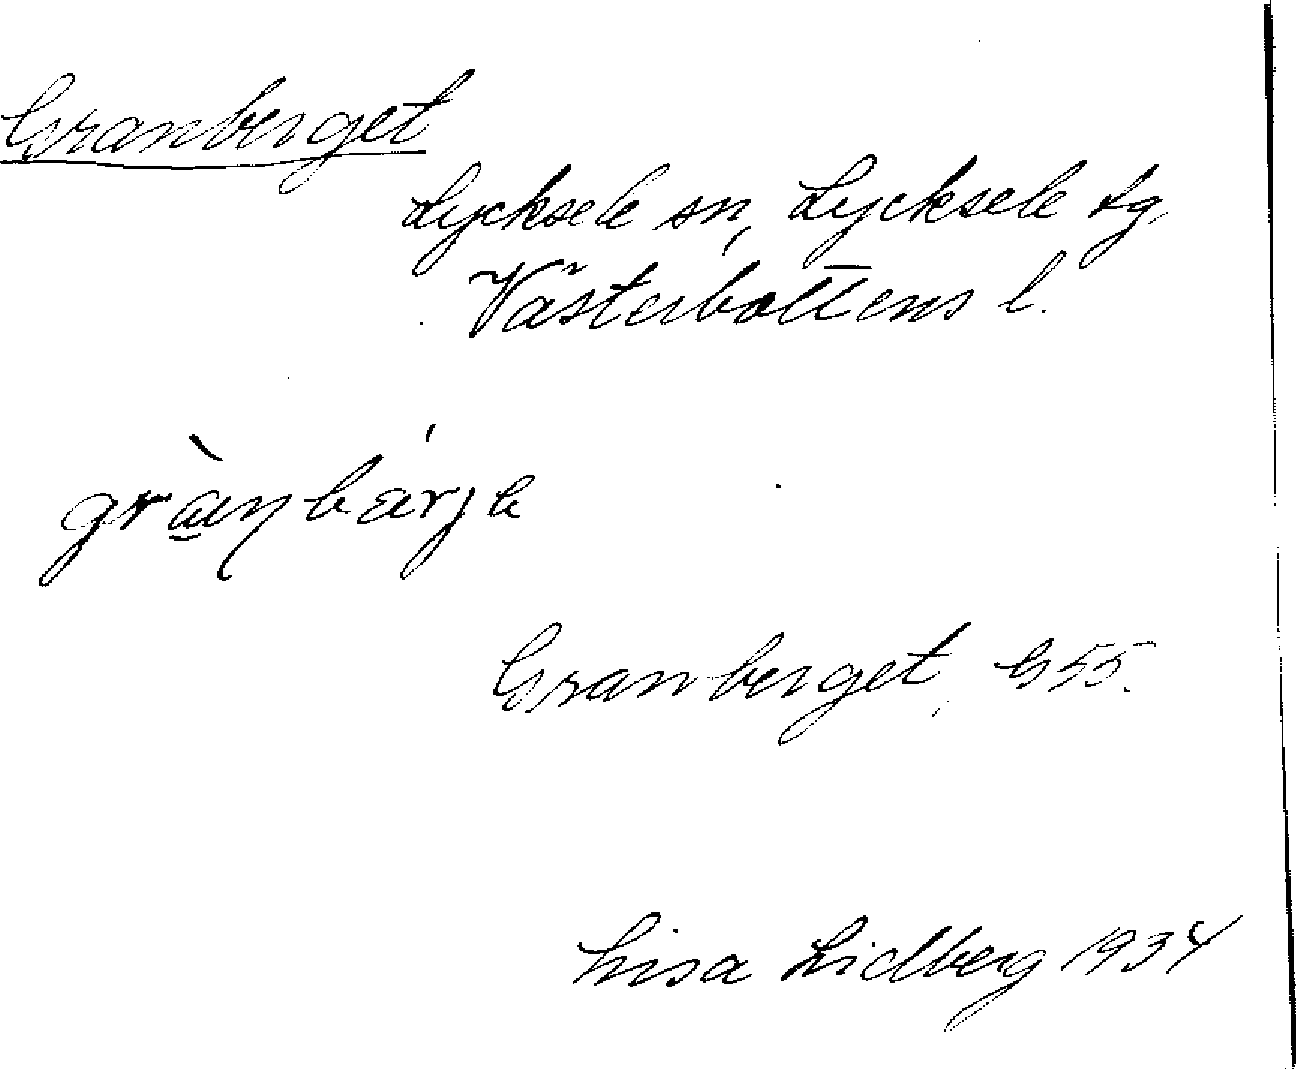 Granberget
Lycksele sn, Lycksele tg,
Västerbottens l.
Granberget, G55.
Lisa Lidberg 1934